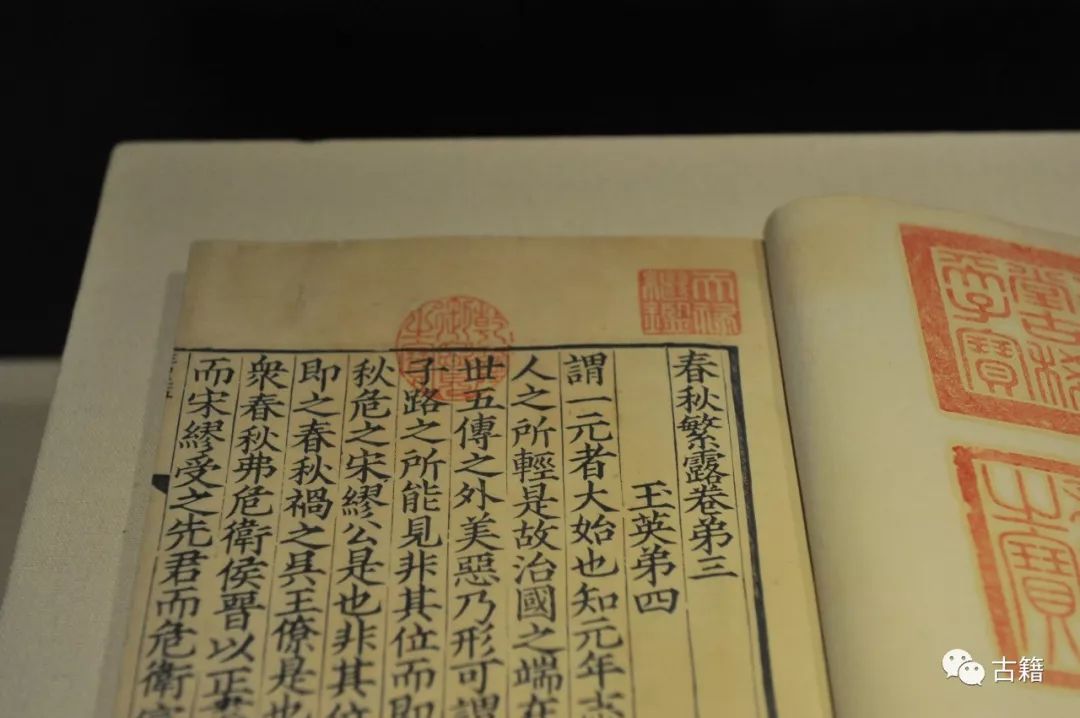 堂古稀
子寶
之寶
天祿繼鑑
乾隆御覽之寶
春秋繁露卷弟三
玉英弟四
謂一元者大始也知元年志
人之所輕是故治國之端在
世五傳之外美惡乃形可謂
子路之所能見非其位而即
秋危之宋繆公是也非其位
即之春秋禍之吳王僚是也
衆春秋弗危衛侯晉以正書
而宋繆受之先君而危衛宣
古籍